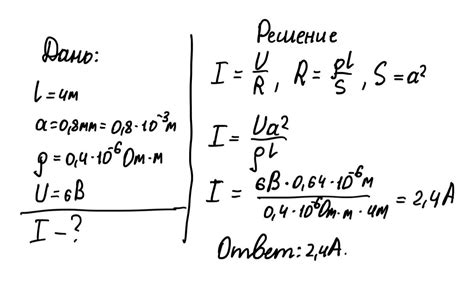 Дано:
l = 4м
a = 0,8мм = 0,8·10⁻³м
ρ = 0,4·10⁻⁶Ом·м
U = 6В
I – ?
Решение
I = U/R, R = ρl/S, S = a²
I = Ua²/ρl
I = 6В·0,64·10⁻⁶м / 0,4·10⁻⁶Ом·м·4м = 2,4А
Ответ: 2,4А.